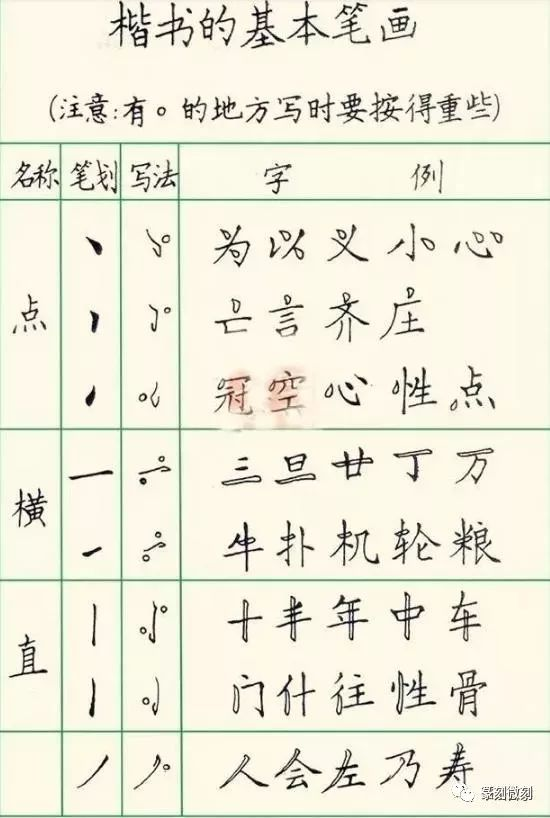 楷书的基本笔画
(注意:有。的地方写时要按得重些)
名称 笔划 写法 字 例
为 以 义 小 心
点 亡 言 齐 庄
冠 空 心 性 点
横 三 旦 廿 丁 万
牛 扑 机 轮 粮
直 十 半 年 中 车
门 什 往 性 骨
人 会 左 乃 寿
篆刻微刻